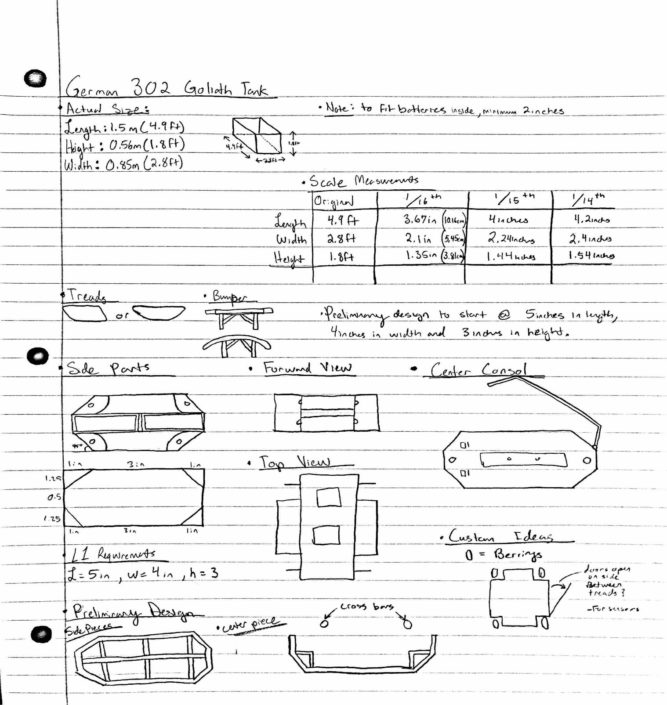 German 302 Goliath Tank
• Actual Size:
Length: 1.5m (4.9ft)
Hight: 0.56m (1.8ft)
Width: 0.85m (2.8ft)
4.9ft
2.8ft
1.8ft
• Note: to fit batteries inside, minimum 2inches
• Scale Measurements
Original 1/16th 1/15th 1/14th
Length 4.9ft 3.67in (10.16cm) 4inches 4.2inches
Width 2.8ft 2.1in (5.45cm) 2.24inches 2.4inches
Height 1.8ft 1.35in (3.81cm) 1.44inches 1.54inches
• Treads
or
• Bumper
• Preliminary design to start @ 5inches in length,
4inches in width and 3inches in height.
• Side Parts
• Forward View
• Center Consol
1in 3in 1in
1.25
0.5
1.25
1in 3in 1in
• Top View
• L1 Requirements
L=5in, w=4in, h=3
• Custom Ideas
0 = Berrings
doors open
on side
Between
treads?
-For sensors
• Preliminary Design
Side Pieces
• Center piece
cross bars